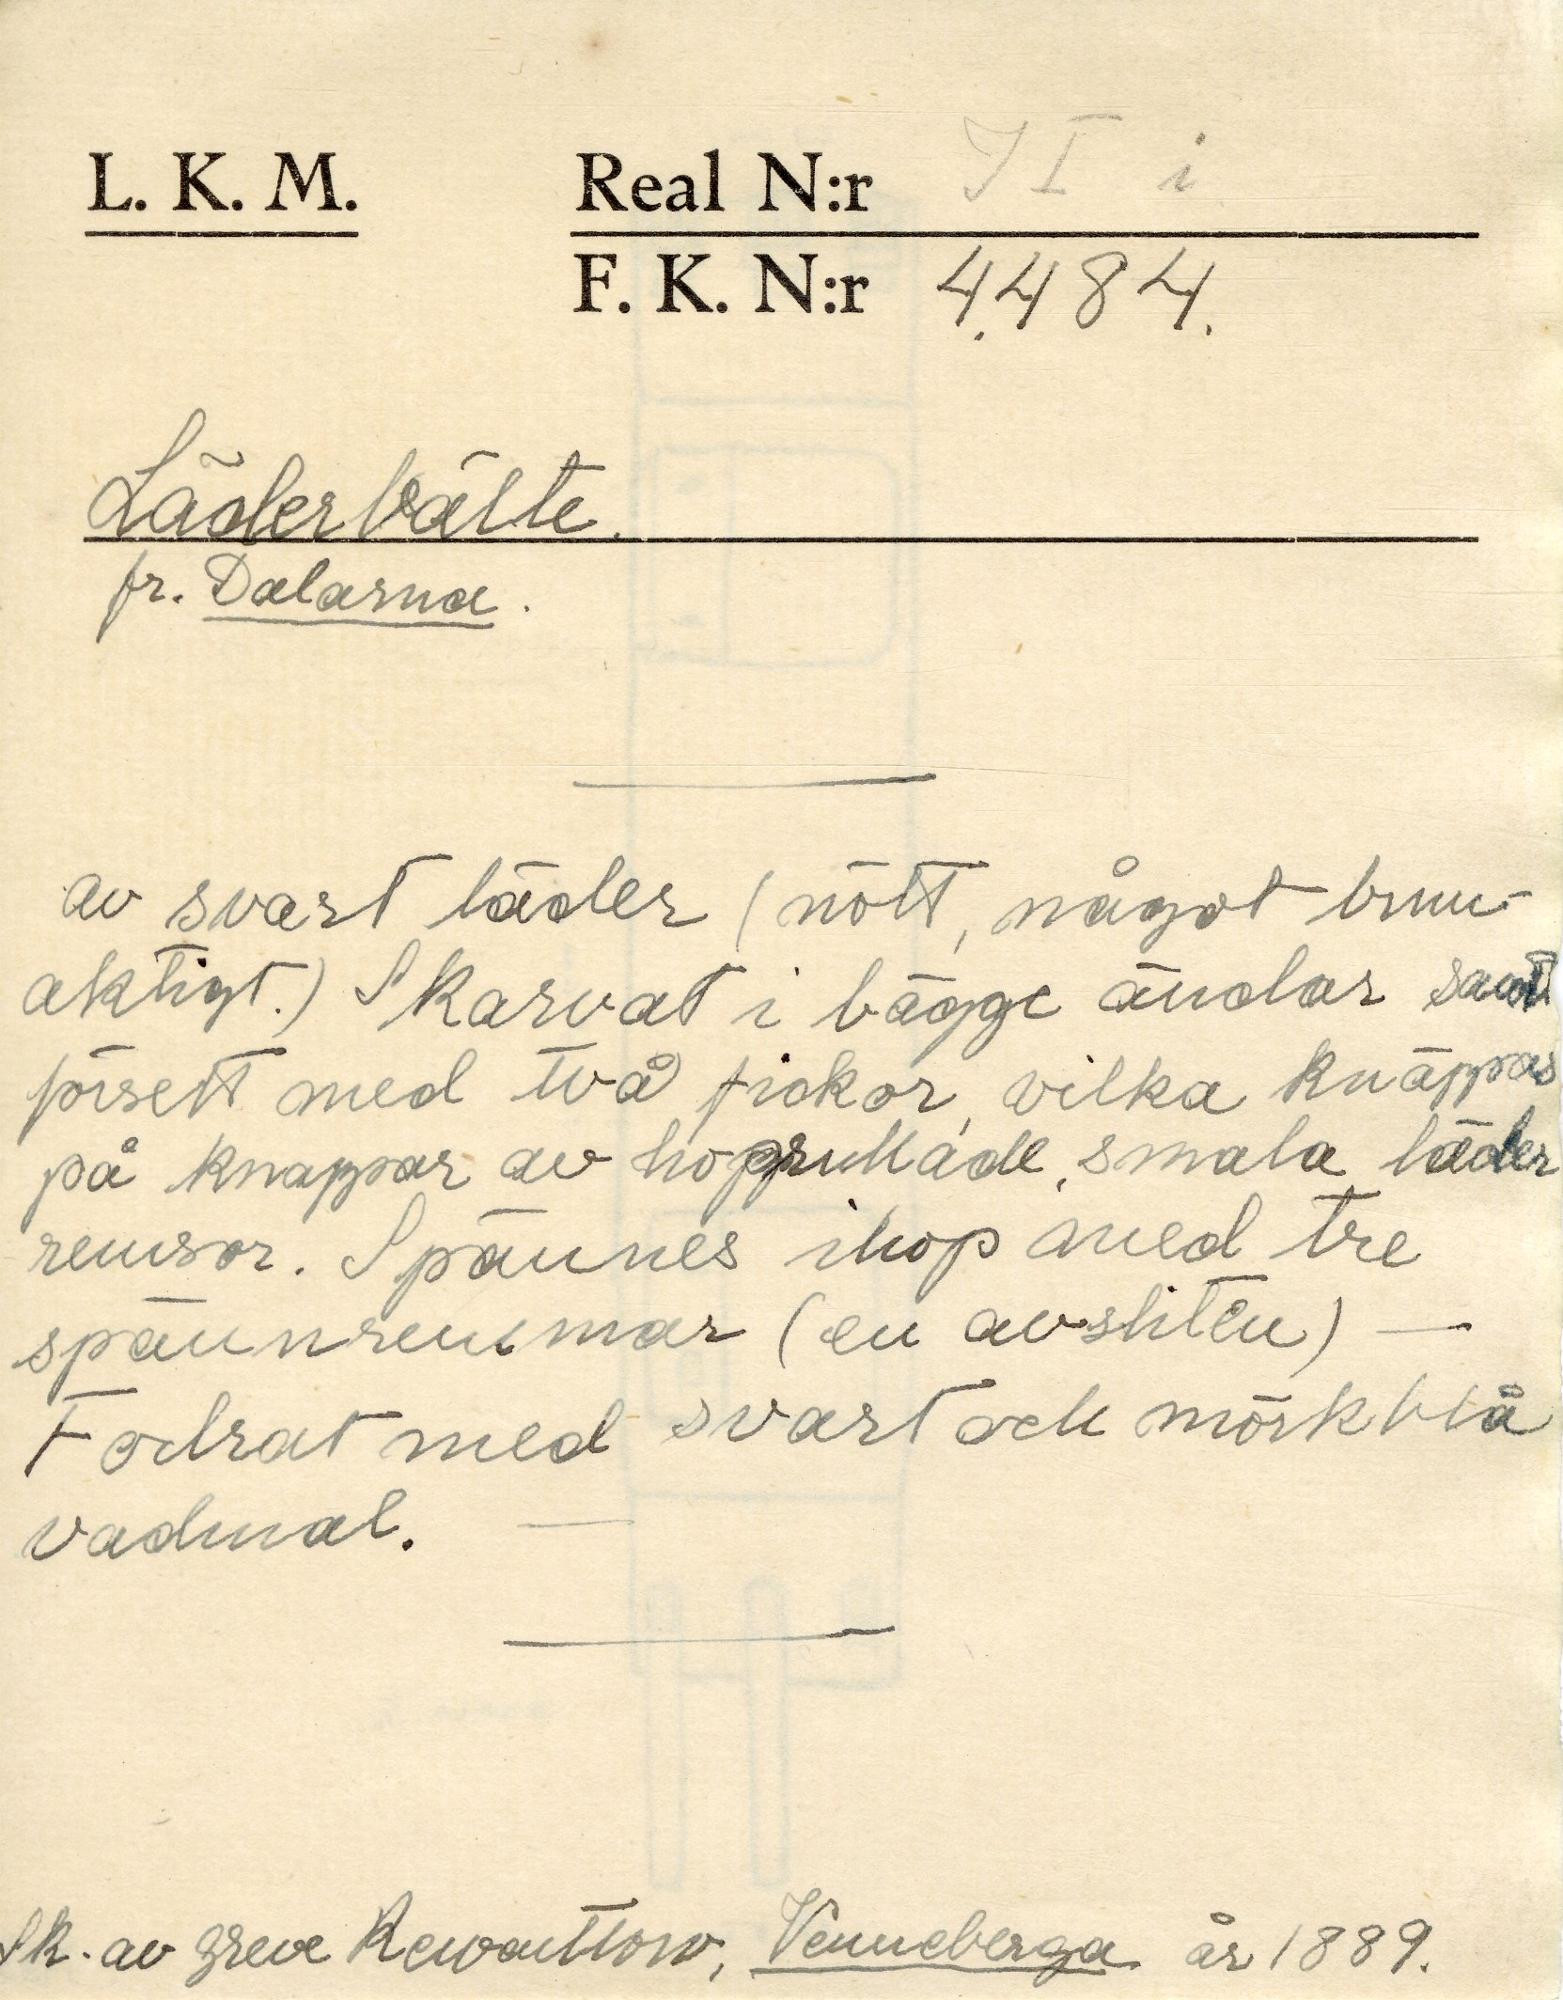 L. K. M.
Real N:r I i
F. K. N:r 4484.
Läderbälte.
fr. Dalarna.
av svart läder (nött, något brun-
aktigt.) Skarvat i bägge ändar samt
försett med två fickor, vilka knäppas
på knappar av hoprullade, smala läder
remsor. Spännes ihop med tre
spännremmar (en avsliten) —
Fodrat med svart och mörkblå
vadmal. —
Sk. av greve Rewentlow, Venneberga år 1889.